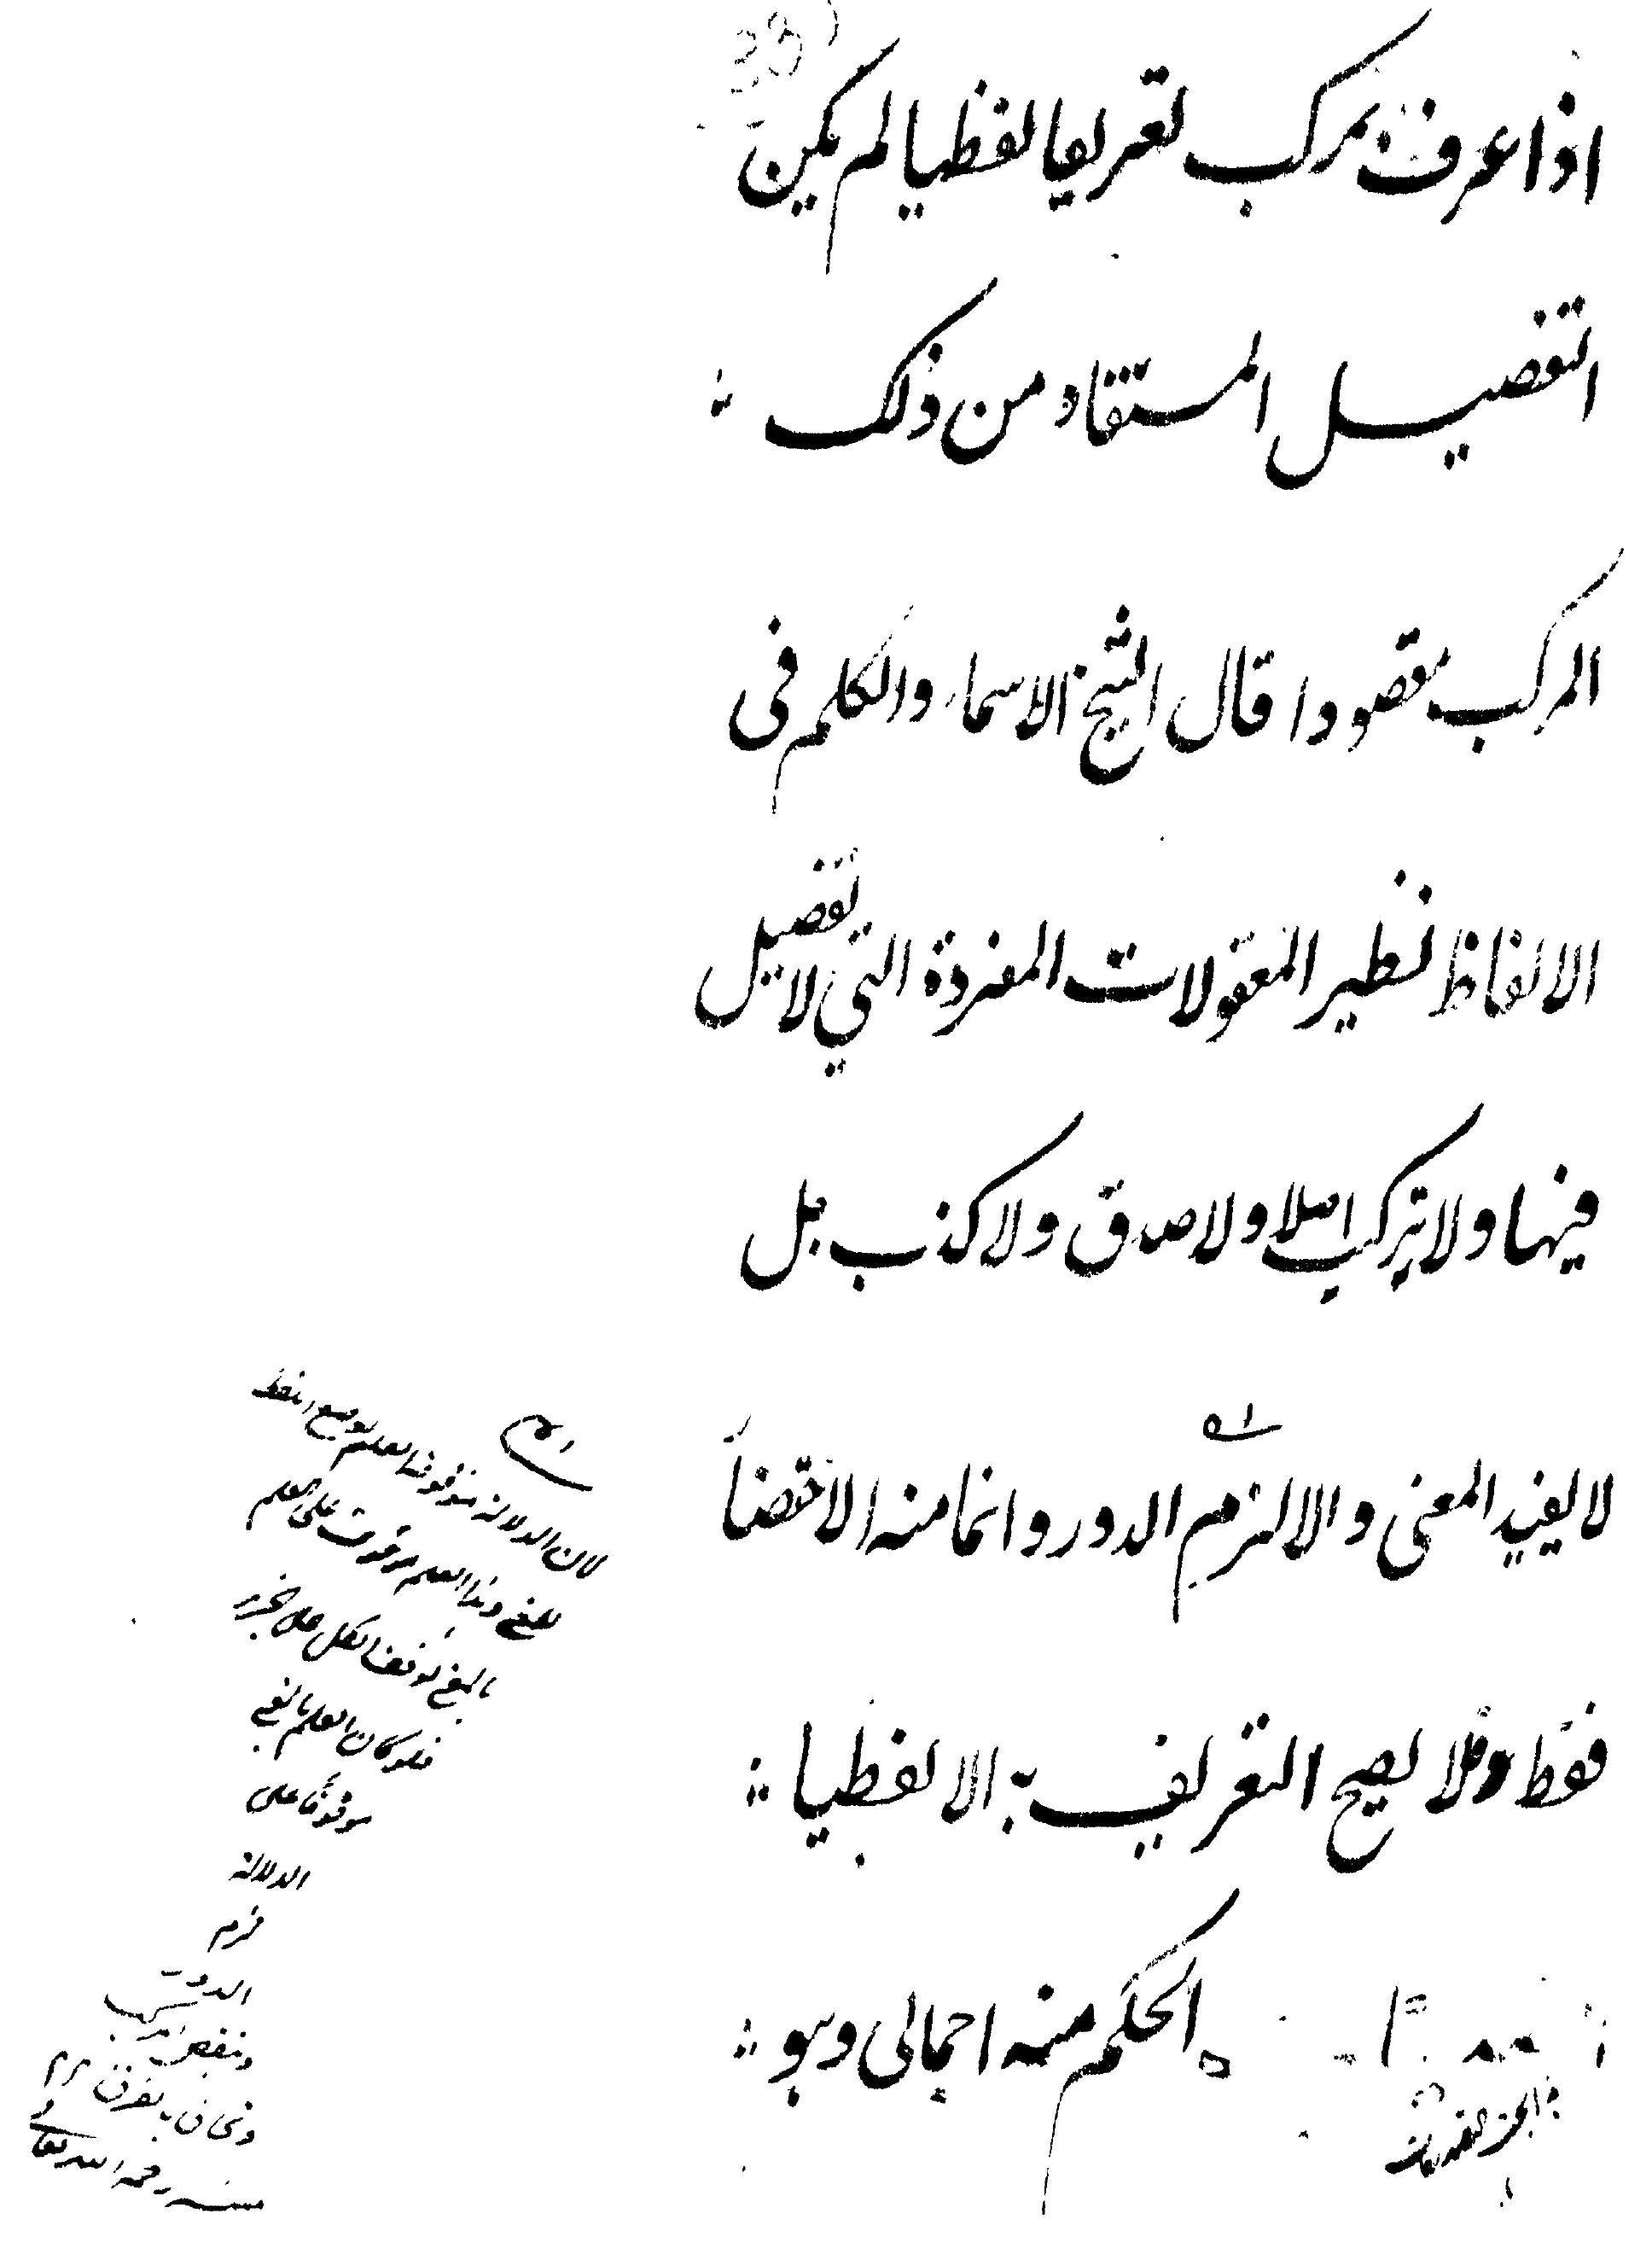 اذا عرف بمركب تعريفا لفظيا لم يكن
التفصيل المستفاد من ذلك
المركب مقصودا قال الشيخ الاسماء والكلم فى
الالفاظ نظير المعقولات المفردة التي لا تفصيل
فيها ولا تركيب اصلا ولا صدق ولا كذب بل
لا يفيد المعنى والا لزم الدور وانما منه الاحضار
فقط فلا يصح التعريف به الا لفظيا
الحكم منه اجمالى وهو
لان الدلالة موقوفة العلم بوضع اللفظ
للمعنى وهذا العلم موقوف على العلم
بالمعنى توقف الكل على جزء
فلو كان العلم بالمعنى
موقوفا على
الدلالة
لزم
الدور
منه رحمه الله تعالى